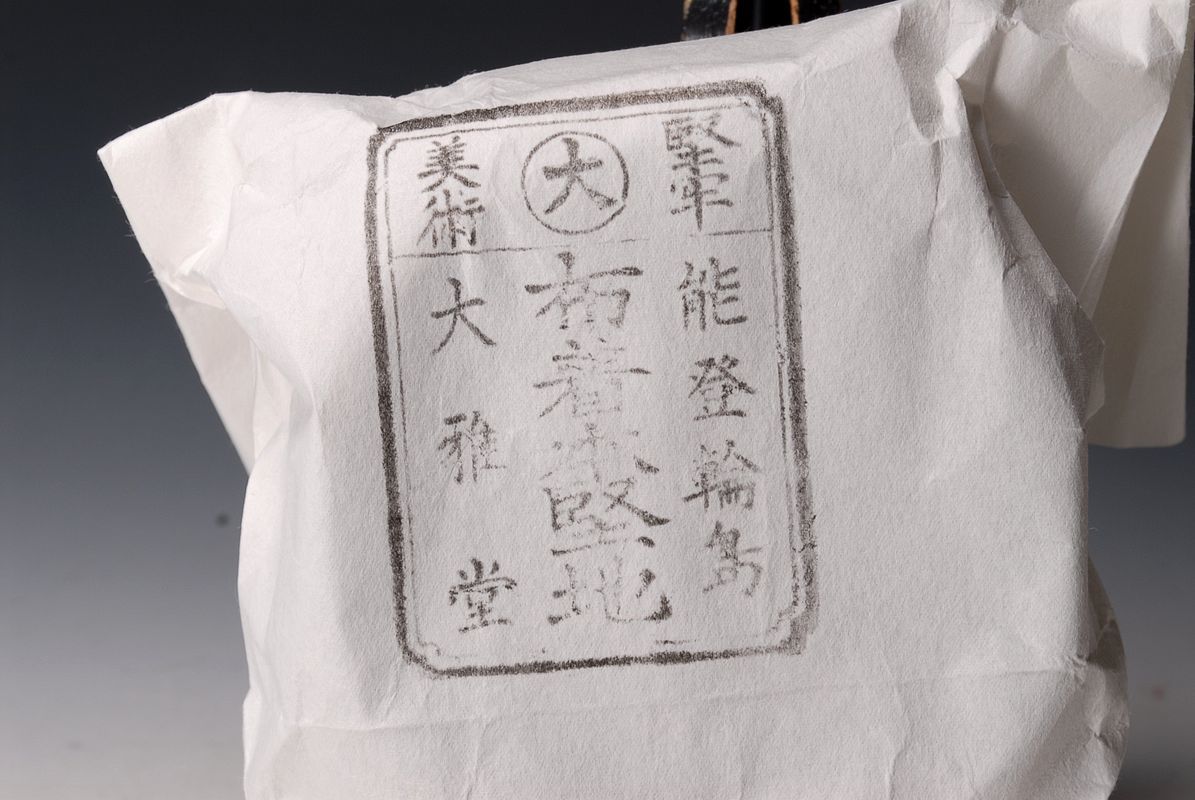 堅牢
大
美術
能登輪島
布着本堅地
大雅堂